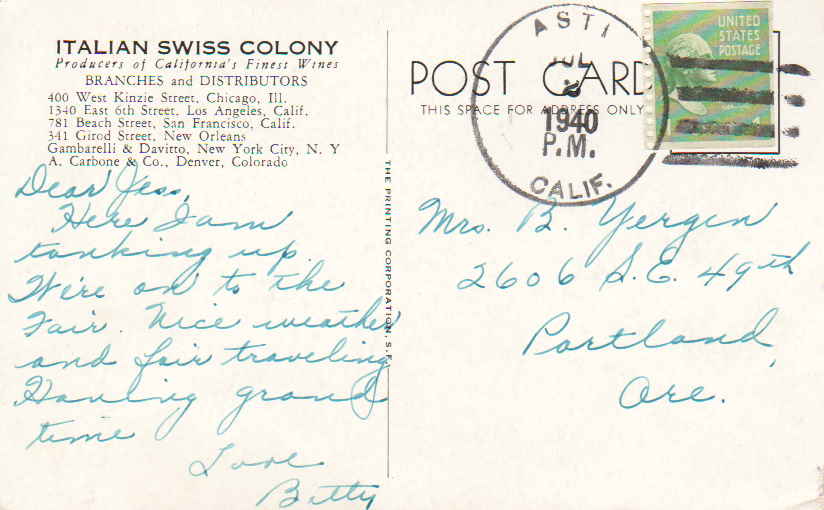 ITALIAN SWISS COLONY
Producers of California's Finest Wines
BRANCHES and DISTRIBUTORS
400 West Kinzie Street, Chicago, Ill.
1340 East 6th Street, Los Angeles, Calif.
781 Beach Street, San Francisco, Calif.
341 Girod Street, New Orleans
Gambarelli & Davitto, New York City, N. Y
A. Carbone & Co., Denver, Colorado
Dear Jess,
Here I am
tanking up.
We're on to the
Fair. Nice weather
and fair traveling
Having grand
time
Love
Betty
THE PRINTING CORPORATION, S.F.
POST CARD
THIS SPACE FOR ADDRESS ONLY
ASTI
JUL
2
1940
P.M.
CALIF.
UNITED
STATES
POSTAGE
Mrs. B. Yergen
2606 S.E. 49th
Portland,
Ore.